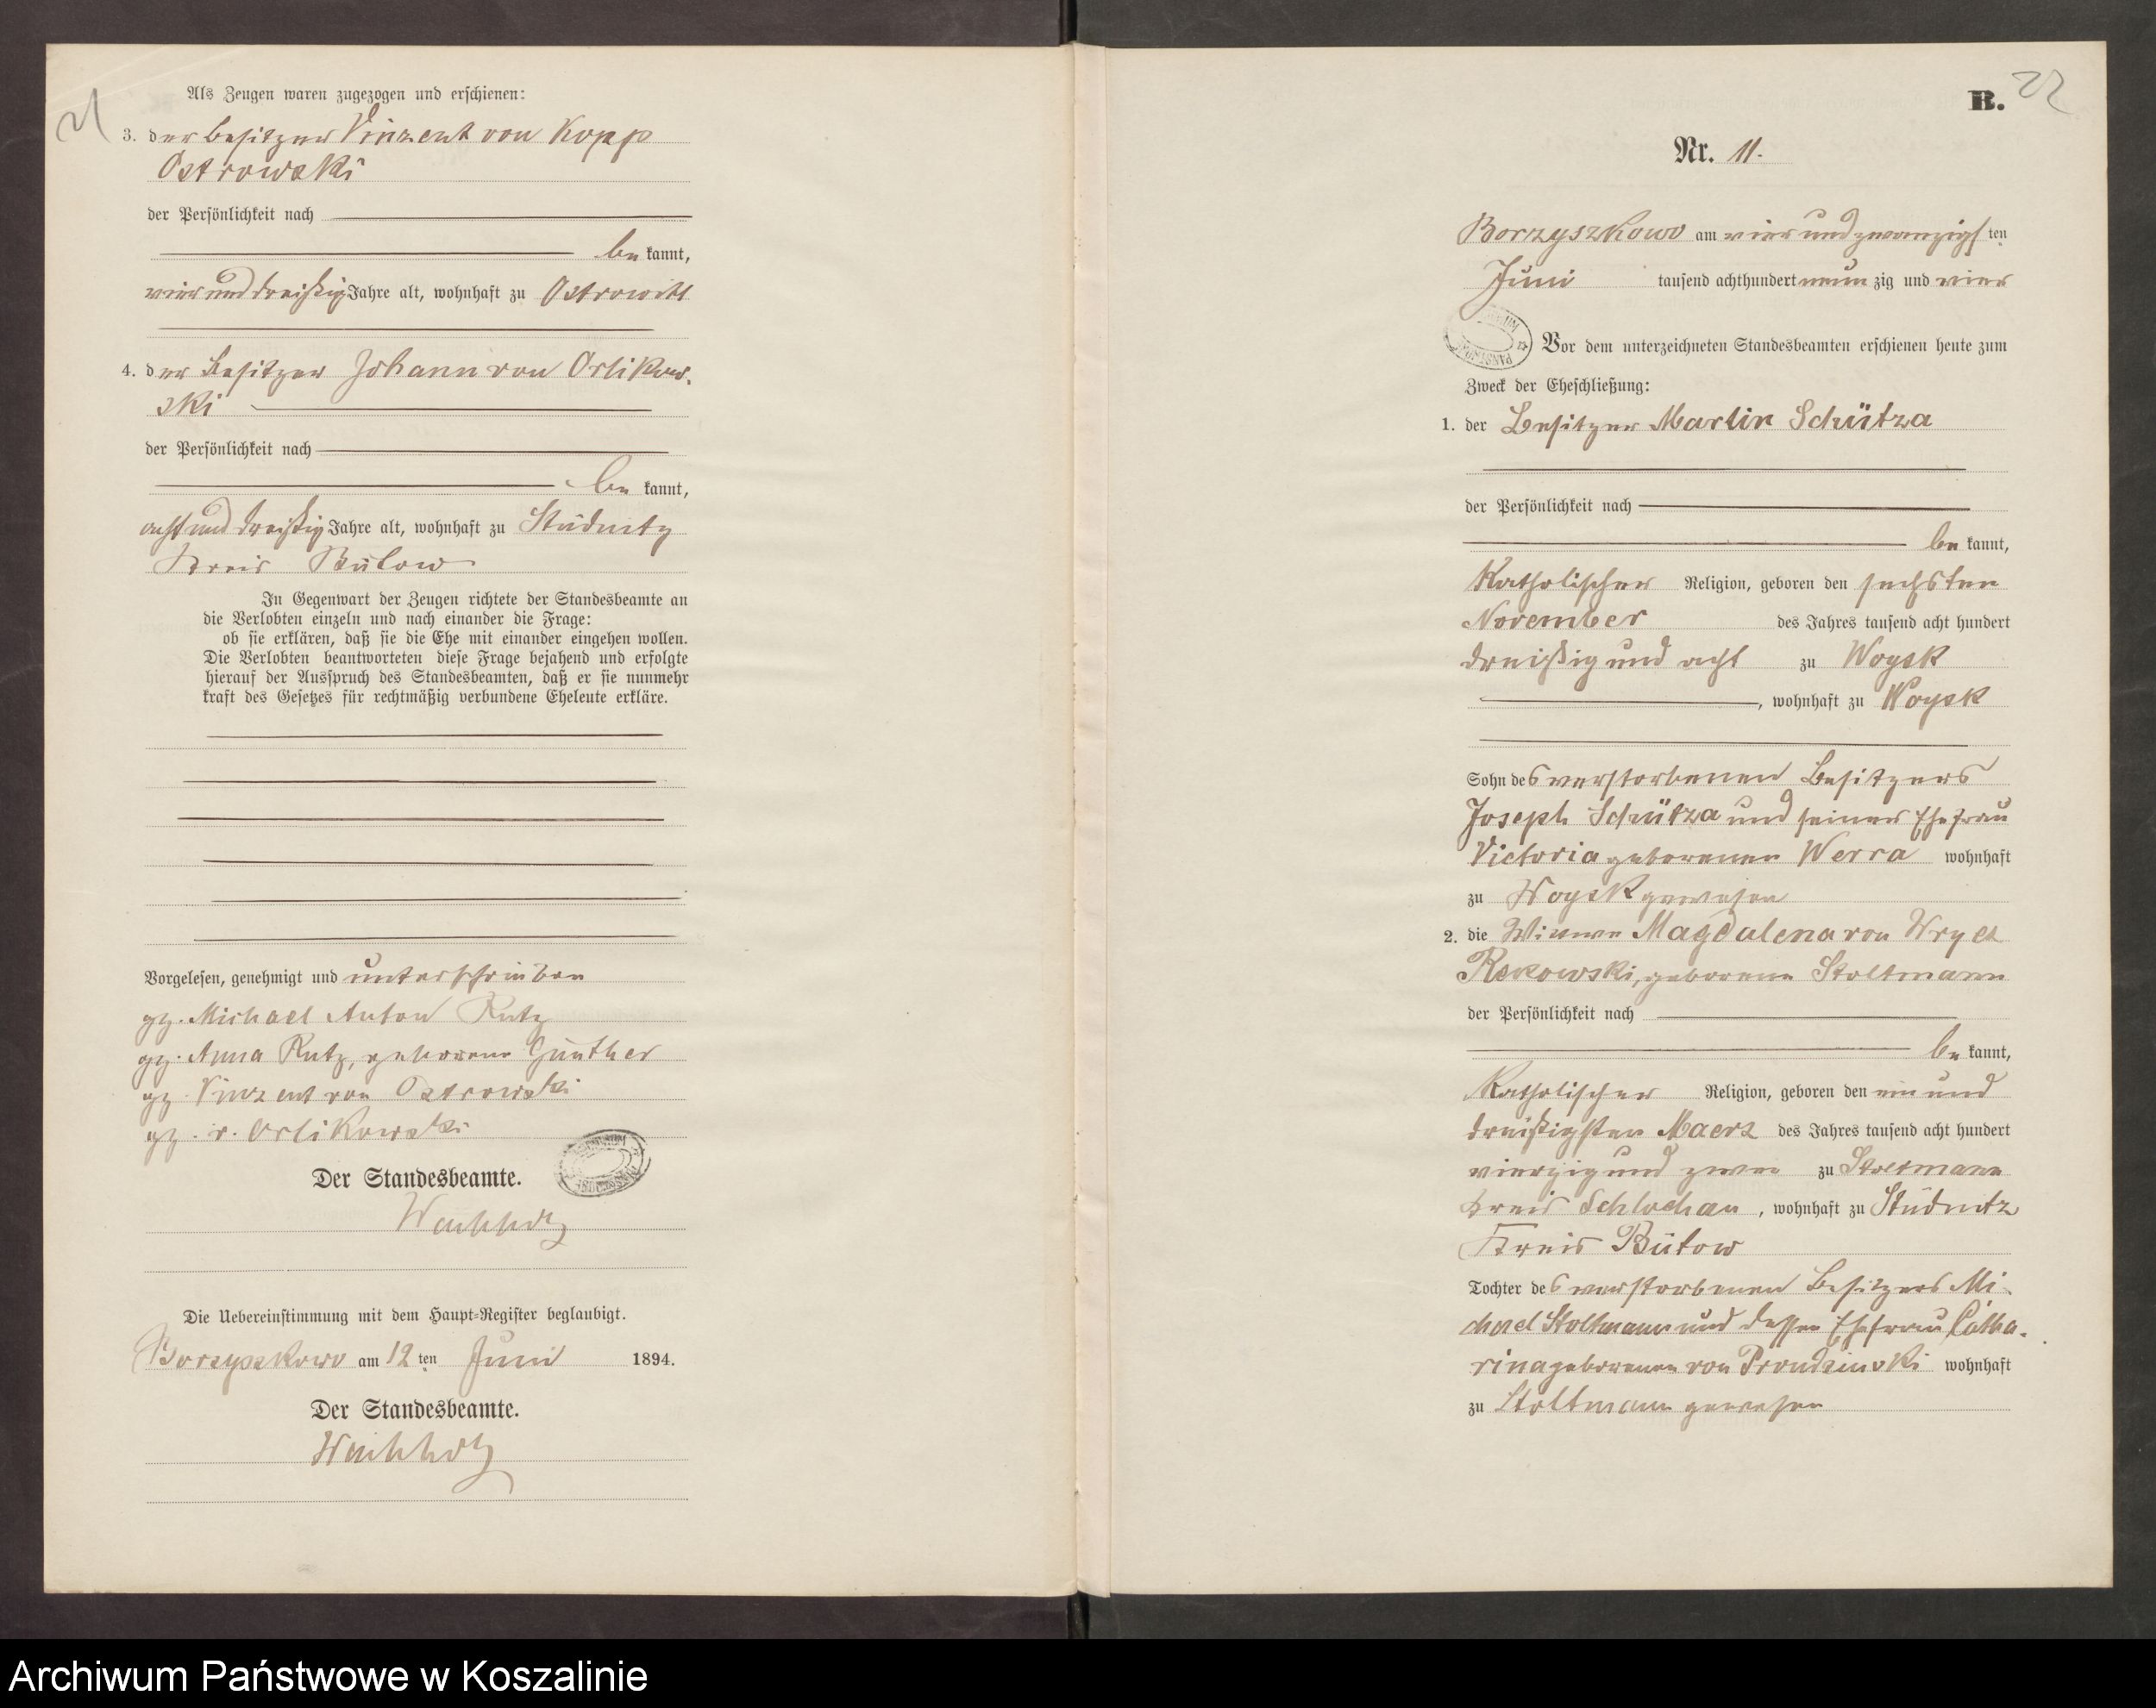 21
Als Zeugen waren zugezogen und erschienen:
3. der Besitzer Vinzent von Kopp
Ostrowski
der Persönlichkeit nach
be kannt,
vier und dreißig Jahre alt, wohnhaft zu Ostrowitt
4. der Besitzer Johann von Orlikow-
ski
der Persönlichkeit nach
be kannt,
acht und dreißig Jahre alt, wohnhaft zu Stüdnitz
Kreis Bütow
In Gegenwart der Zeugen richtete der Standesbeamte an
die Verlobten einzeln und nach einander die Frage:
ob sie erklären, daß sie die Ehe mit einander eingehen wollen.
Die Verlobten beantworteten diese Frage bejahend und erfolgte
hierauf der Ausspruch des Standesbeamten, daß er sie nunmehr
kraft des Gesetzes für rechtmäßig verbundene Eheleute erkläre.
Vorgelesen, genehmigt und unterschrieben
gz. Michael Anton Rutz
gz. Anna Rutz, geborene Günther
gz. Vinzent von Ostrowski
gz. v. Orlikowski
Der Standesbeamte.
Wachholz
Die Uebereinstimmung mit dem Haupt-Register beglaubigt.
Borzyszkowo am 12 ten Juni 1894.
Der Standesbeamte.
Wachholz
B. 22
Nr. 11.
Borzyszkowo am vier und zwanzigs ten
Juni tausend achthundert neun zig und vier
Vor dem unterzeichneten Standesbeamten erschienen heute zum
Zweck der Eheschließung:
1. der Besitzer Martin Schütza
der Persönlichkeit nach
be kannt,
Katholischer Religion, geboren den sechsten
November des Jahres tausend acht hundert
dreißig und acht zu Woysk
, wohnhaft zu Woysk
Sohn des verstorbenen Besitzers
Joseph Schütza und seiner Ehefrau
Victoria geborenen Werra wohnhaft
zu Woysk gewesen
2. die Witwe Magdalena von Wrycz
Rekowski, geborene Stoltmann
der Persönlichkeit nach
be kannt,
Katholischer Religion, geboren den ein und
dreißigsten Maerz des Jahres tausend acht hundert
vierzig und zwei zu Stoltmann
Kreis Schlochau, wohnhaft zu Stüdnitz
Kreis Bütow
Tochter des verstorbenen Besitzers Mi-
chael Stoltmann und dessen Ehefrau Catha-
rina geborenen von Prondzinski wohnhaft
zu Stoltmann gewesen
Archiwum Państwowe w Koszalinie